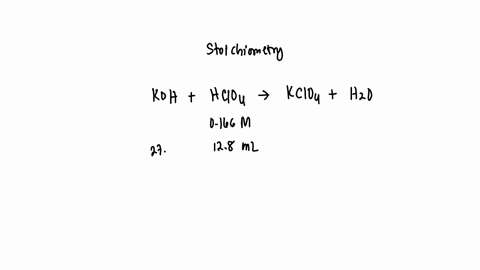 Stoichiometry
KOH + HClO4 → KClO4 + H2O
0.166 M
27. 12.8 mL